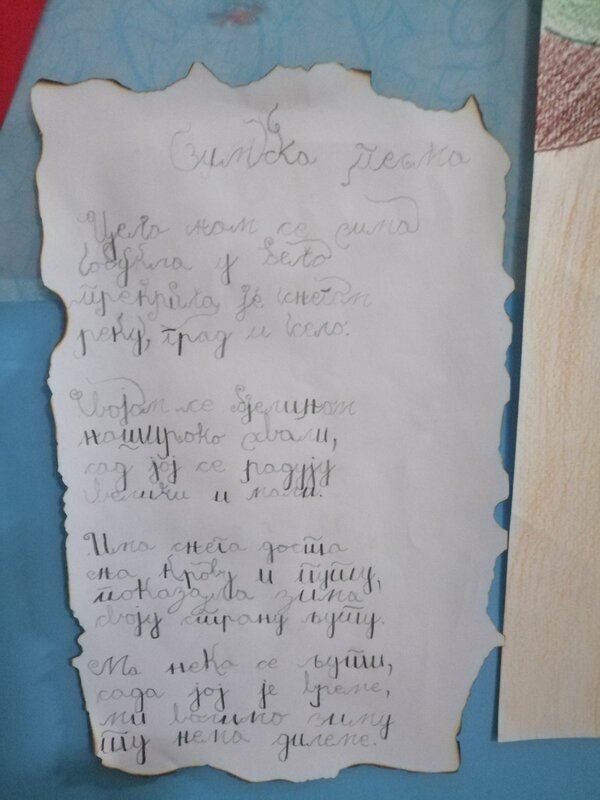 Зимска песма
Цела нам се зима
обукла у бело
прекрила је снегом
реку, град и село.
Својом се бјелином
нашироко хвали,
сад јој се радују
велики и мали.
Има снега доста
на крову и путу,
показала зима
своју страну љуту.
Ма нека се љути,
сада јој је време,
ми волимо зиму
ту нема дилеме.